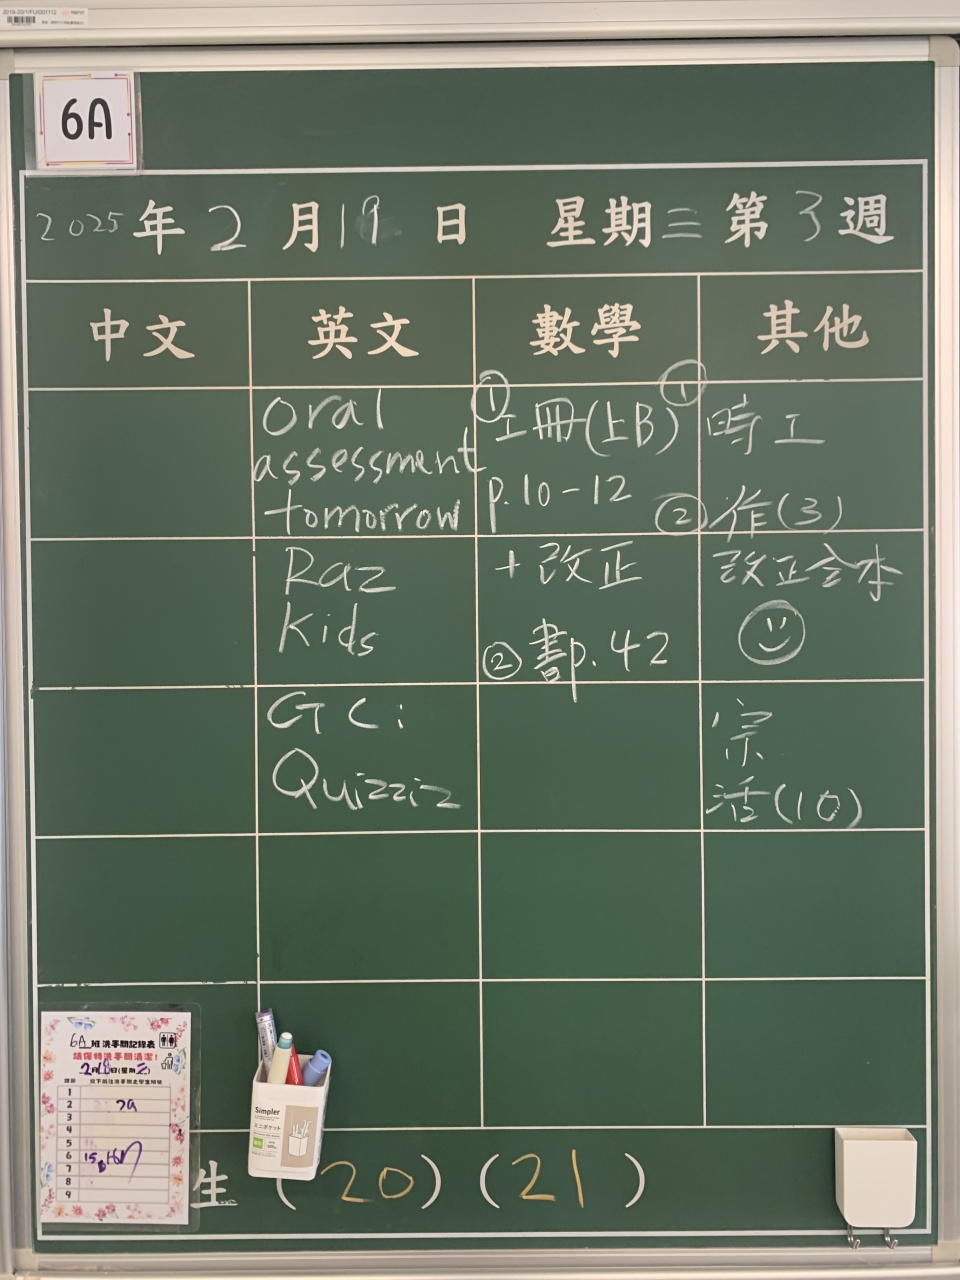 2019-20/1/FU/001112
6A
2025年2月19日 星期三第3週
中文 英文 數學 其他
oral
assessment
tomorrow
Raz
Kids
GC:
Quizziz
① 工冊(上B)
p.10-12
+改正
② 書p.42
① 時工
② 作(3)
改正全本
宗
活(10)
生 (20)(21)
6A班洗手間記錄表
請保持洗手間清潔!
2月18日(星期二)
1
2
3
4
5
6
7
8
9
Simpler
ミニポケット